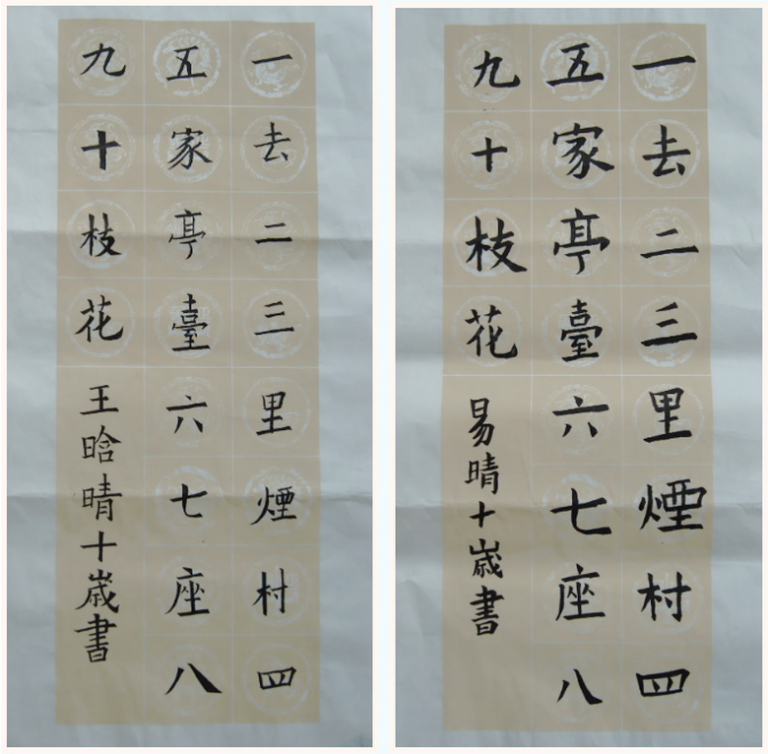 一去二三里煙村四
五家亭臺六七座八
九十枝花
王晗晴十歳書
一去二三里煙村四
五家亭臺六七座八
九十枝花
易晴十歳書